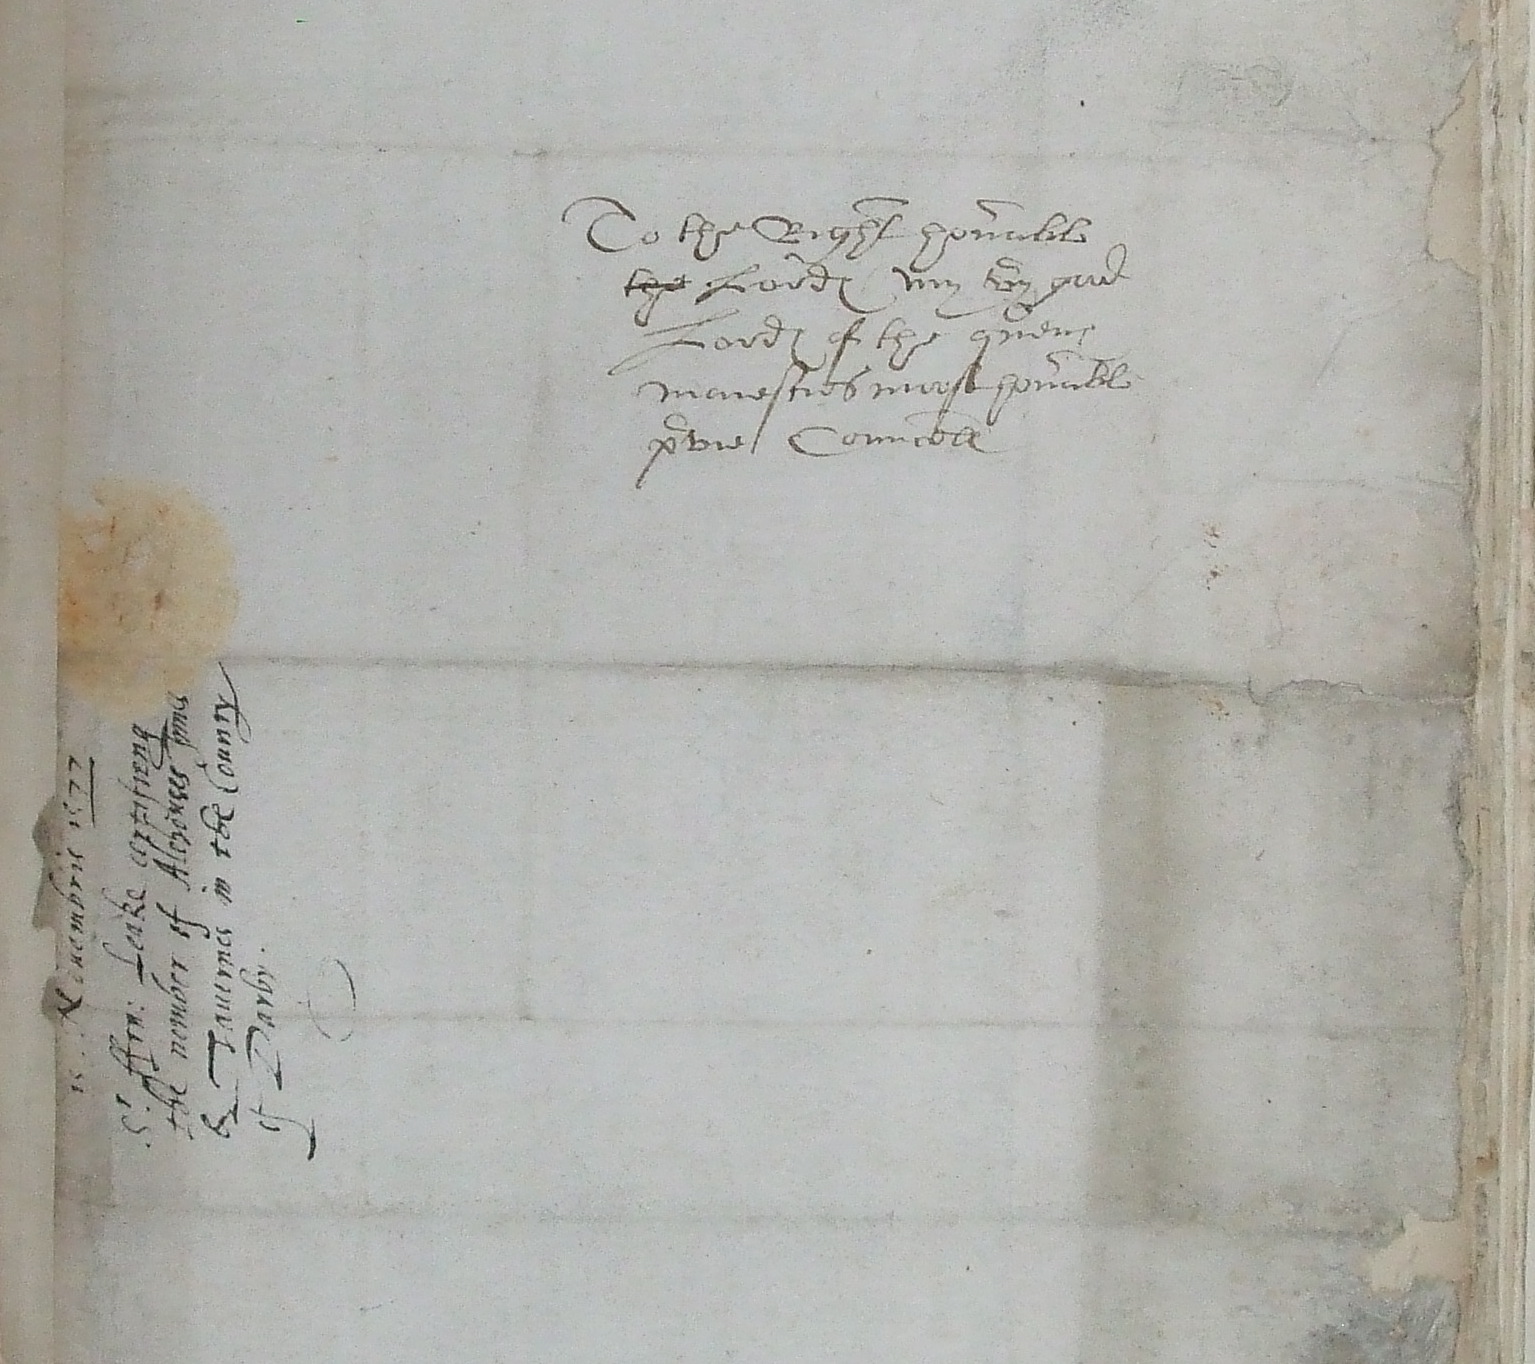 To the Right honorable
the Lord my very good
Lord of the quenes
maiesties moost honorable
privie Councell
Novembris 1577
Sr ffrn: Leake certifieng
the nomber of Alehouses Innes
& Tavernes in the County
of Darby.